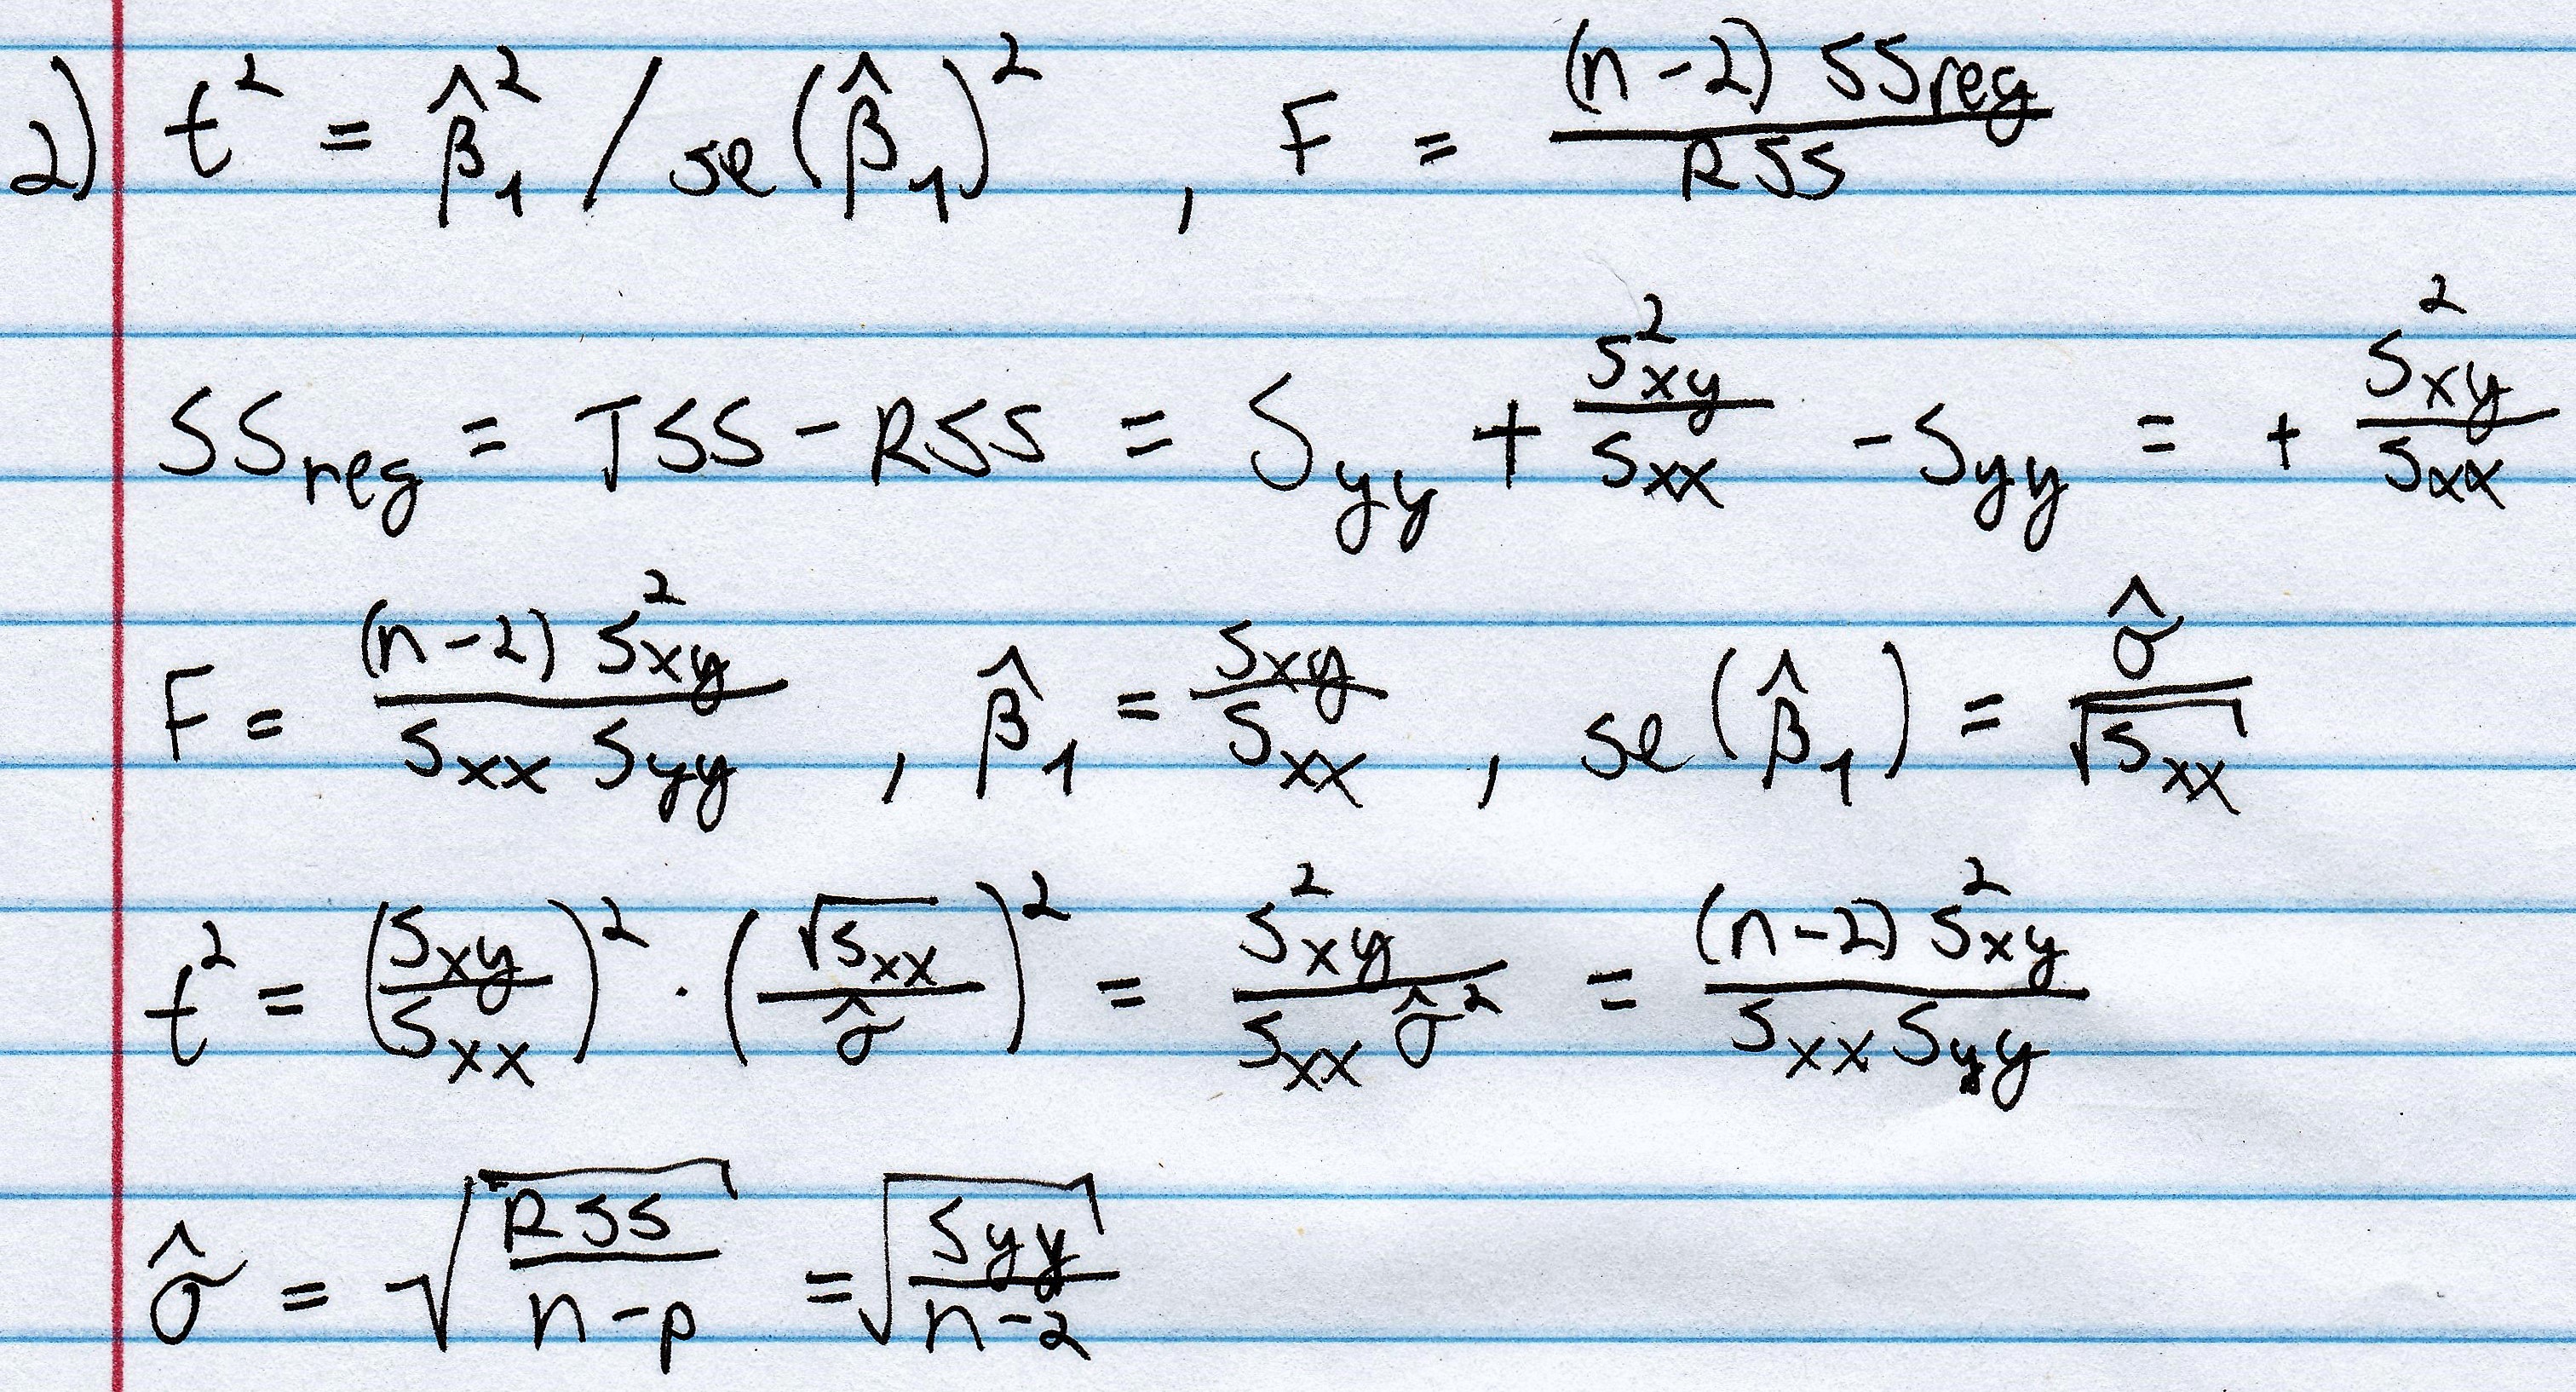 2) t² = β̂₁² / se(β̂₁)² , F = (n-2) SSreg / RSS
SSreg = TSS - RSS = Syy + S²xy / Sxx - Syy = + S²xy / Sxx
F = (n-2) S²xy / Sxx Syy , β̂₁ = Sxy / Sxx , se(β̂₁) = σ̂ / √Sxx
t² = (Sxy / Sxx)² · (√Sxx / σ̂)² = S²xy / Sxx σ̂² = (n-2) S²xy / Sxx Syy
σ̂ = √(RSS / n-p) = √(Syy / n-2)